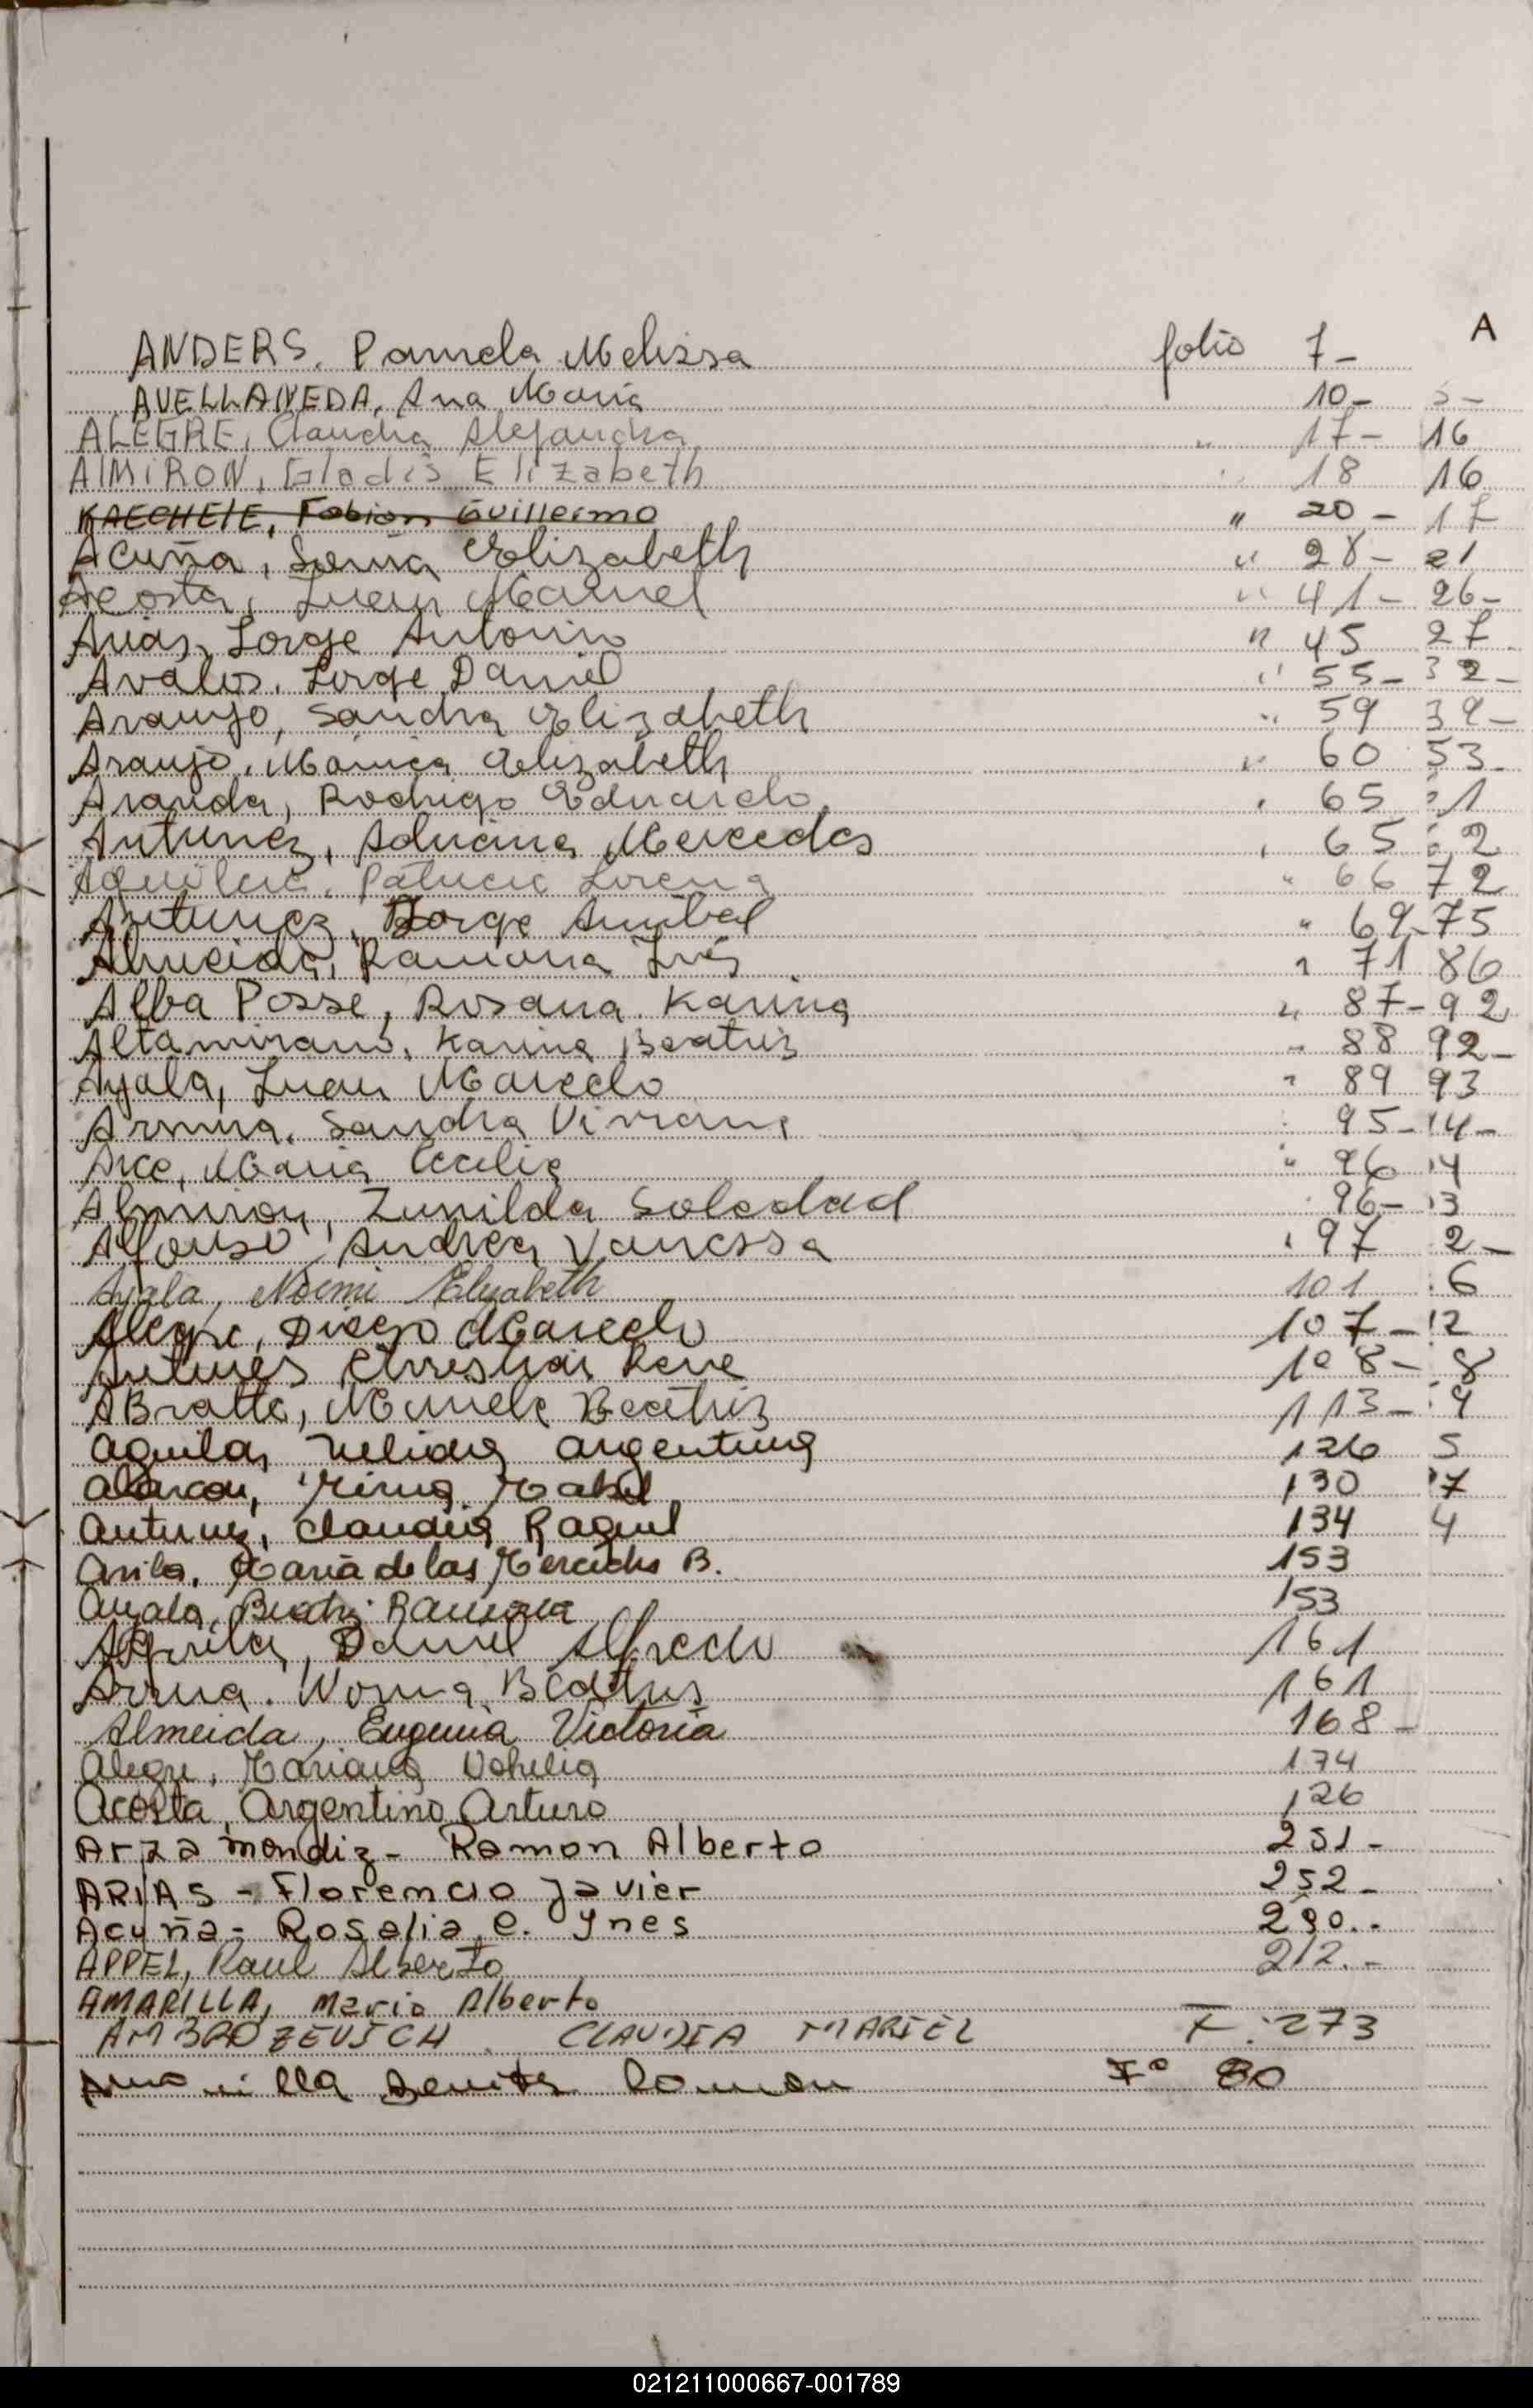 A
ANDERS, Pamela Melissa folio 7-
AVELLANEDA, Ana María 10-
ALEGRE, Claudia Alejandra " 17- 16
AlMiRON, Gladis Elizabeth " 18 16
KAECHELE, Fabian Guillermo " 20- 17
Acuña, Sonia Elizabeth " 28- 21
Acosta, Juan Manuel " 41- 26-
Arias, Jorge Antonio " 45 27
Avalos, Jorge Daniel " 55- 32-
Araujo, Sandra Elizabeth " 59 39-
Araujo, Mónica Elizabeth " 60 53-
Aranda, Rodrigo Eduardo " 65
Antunez, Adriana Mercedes " 65
Aguilera, Patricia Lorena " 66 72
Antunez, Jorge Anibal " 69-75
Almeida, Ramona Inés " 71 86
Alba Posse, Rosana Karina " 87-92
Altamirano, Karina Beatriz " 88 92-
Ayala, Juan Marcelo " 89 93
Armua, Sandra Viviana " 95-14-
Arce, Maria Cecilia " 96 14
Almiron, Zunilda Soledad 96- 13
Alfonso, Andrea Vanessa 97 2-
Ayala, Noemi Elizabeth 101 6
Alegre, Diego Marcelo 107-12
Antunes Christian Rene 108- 8
ABratte, Beatriz 113- 9
Aguila, Nelida Argentina 126 5
Alarcon, Mirna Mabel 130 7
Antunez, Claudia Raquel 134 4
Avila, Maria de las Mercedes B. 153
Ayala, Beatriz Ramona 153
Daniel Alfredo 161
Arrua. Norma Beatris 161
Almeida, Eugenia Victoria 168-
Alegre, Mariana 174
Acosta, Argentino Arturo 126
Arza mendiz- Ramon Alberto 251-
ARIAS - Florencio Javier 252-
Acuña- Rosalia e. Ynes 290..
APPEL, Raul Alberto 212.-
AMARILLA, Mario Alberto
AMBROZEVICH CLAUDIA MARIEL F. 273
Benitez Roman F° 80
021211000667-001789